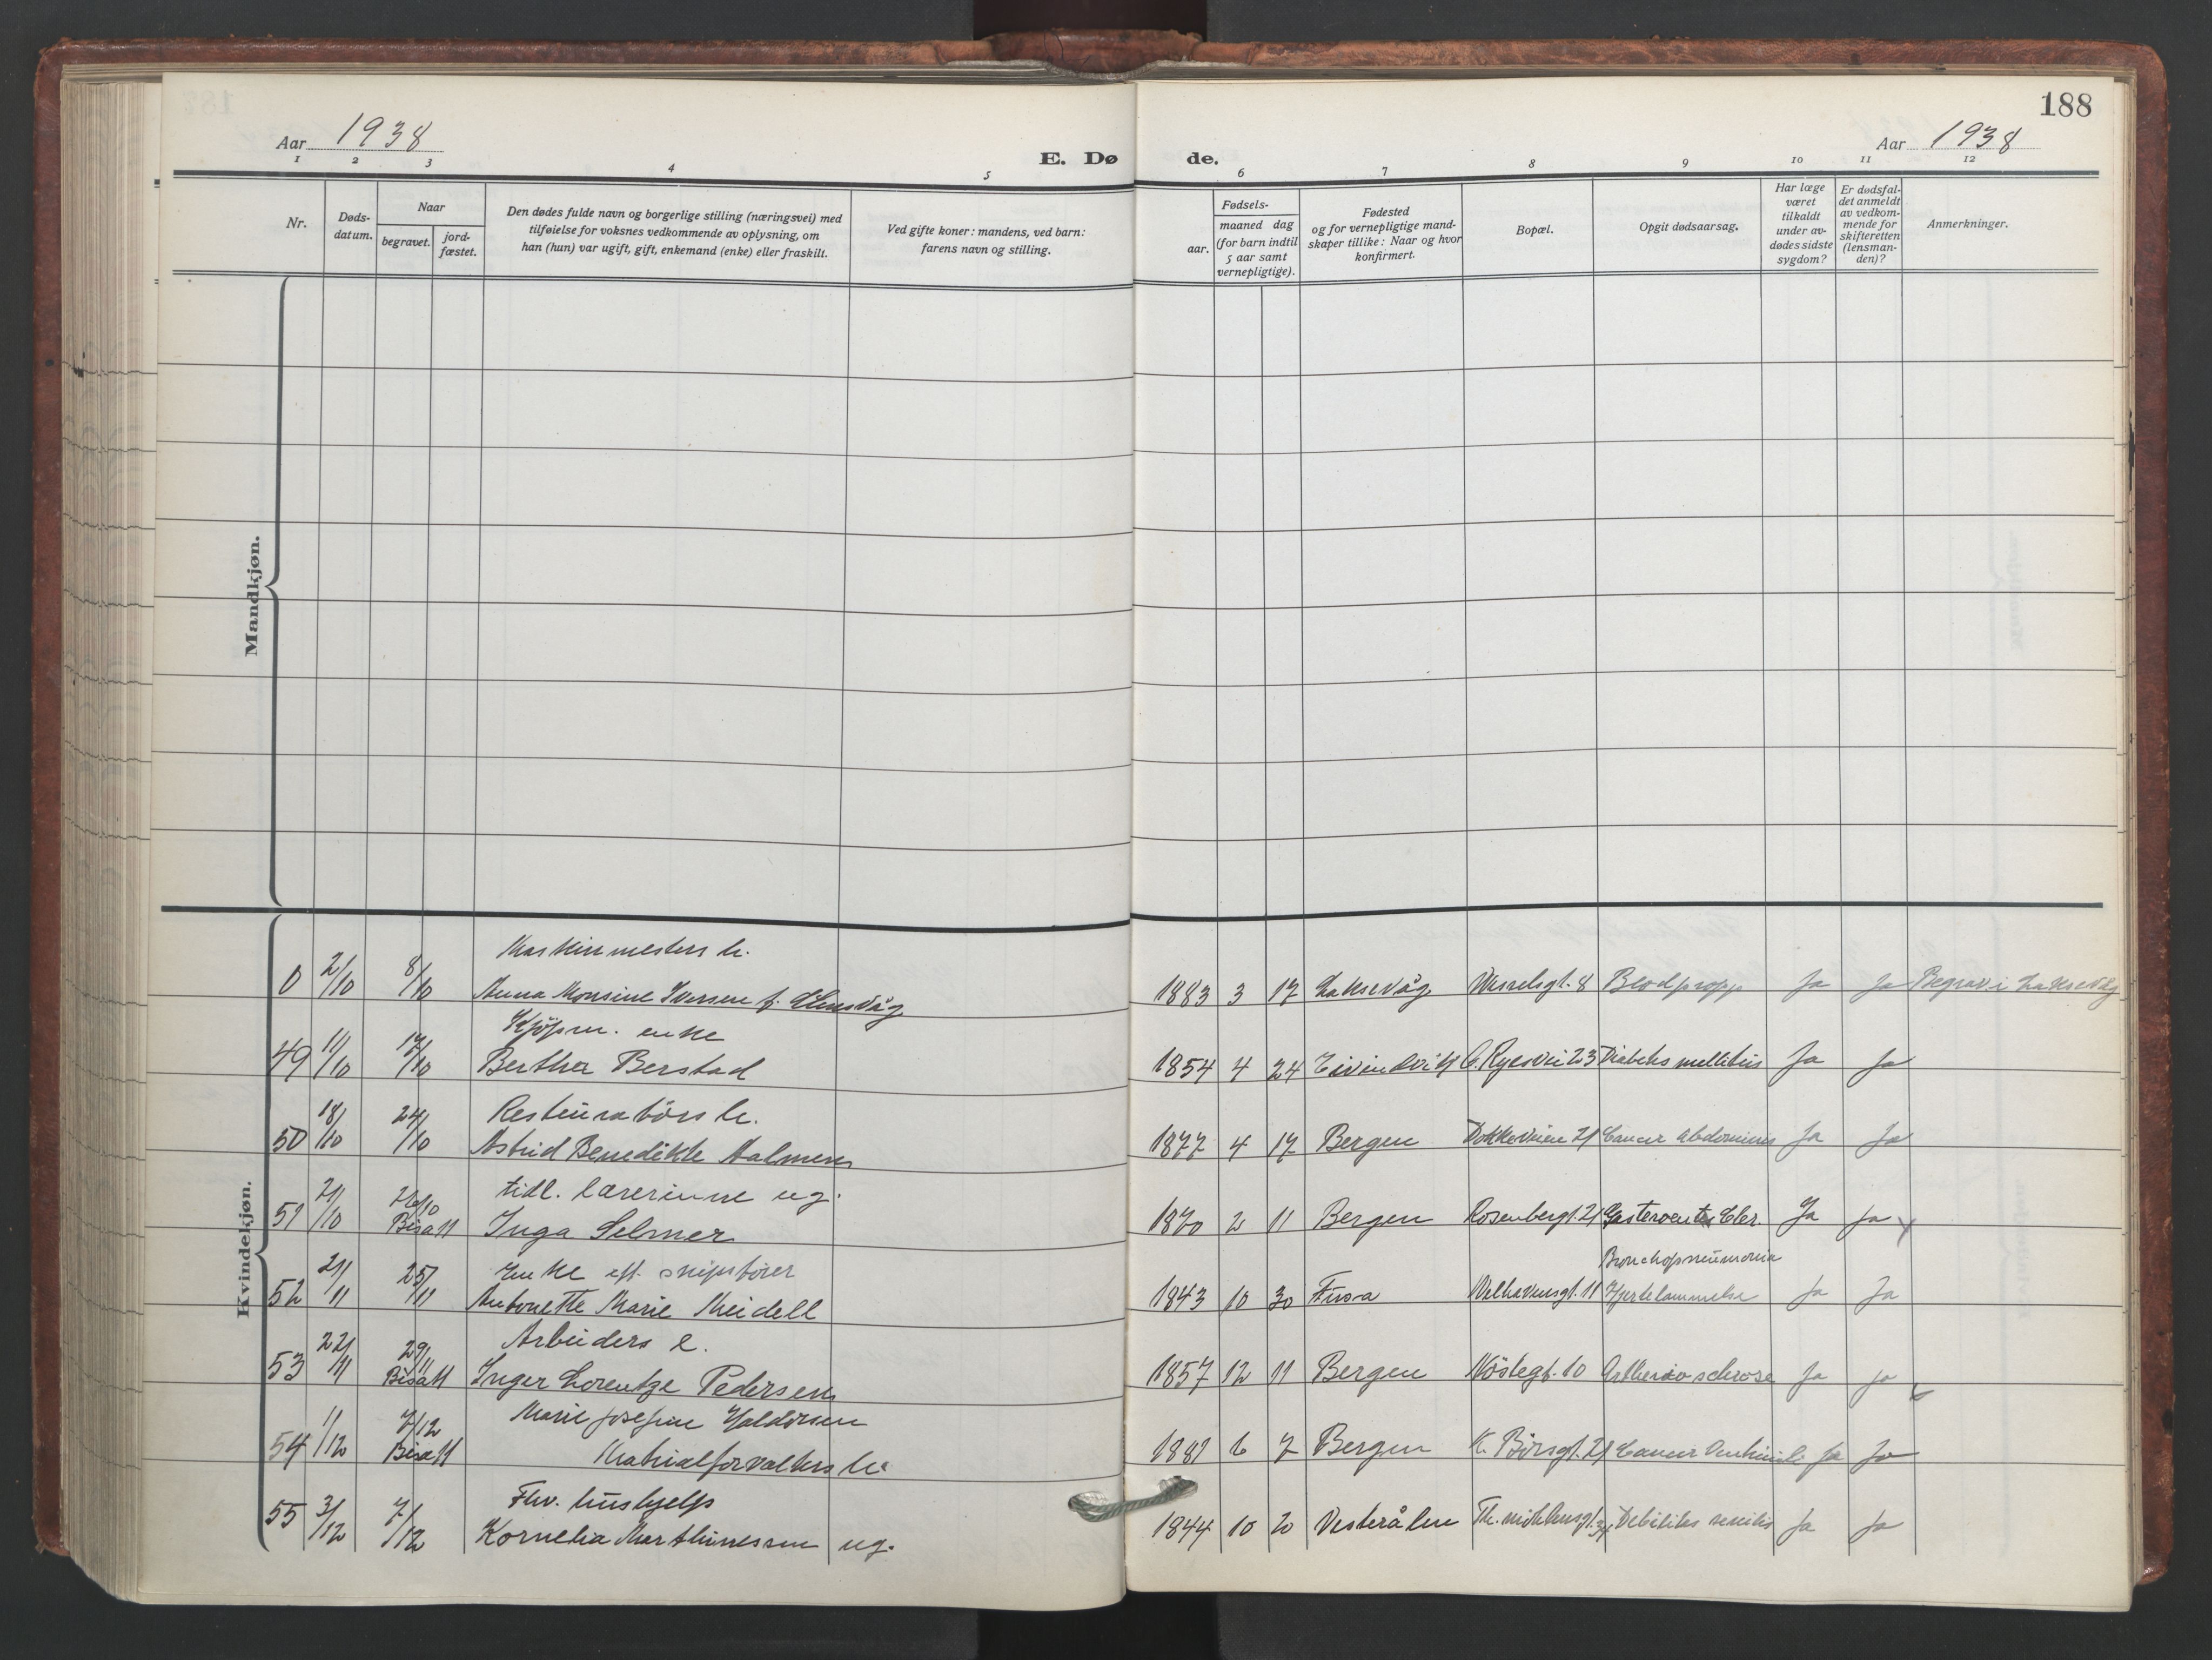 188
Aar 1938
Aar 1938
E. Dø de.
1 2 3 4 5 6 7 8 9 10 11 12
Nr.
Døds-
datum.
Naar
begravet.
jord-
fæstet.
Den dødes fulde navn og borgerlige stilling (næringsvei) med
tilføielse for voksnes vedkommende av oplysning, om
han (hun) var ugift, gift, enkemand (enke) eller fraskilt.
Ved gifte koner: mandens, ved barn:
farens navn og stilling.
aar.
Fødsels-
maaned dag
(for barn indtil
5 aar samt
vernepligtige).
Fødested
og for vernepligtige mand-
skaper tillike: Naar og hvor
konfirmert.
Bopæl.
Opgit dødsaarsag.
Har læge
været
tilkaldt
under av-
dødes sidste
sygdom?
Er dødsfal-
det anmeldt
av vedkom-
mende for
skifteretten
(lensman-
den)?
Anmerkninger.
Mandkjøn.
Kvindekjøn.
Maskinmesters h.
0 2/10 8/10 Anna Monsine Iversen f. 1883 3 17 Laksevåg Wesselsgt. 8 Blodpropp Ja Ja Begrav. i Laksevåg
Kjøpm. enke
49 11/10 17/10 Berthe Berstad 1854 4 24 Eivindvik Ryesvei 23 Diabetes mellitus Ja Ja
Restauratørs h.
50 18/10 24/10 Astrid Benedikte Halmen 1877 4 17 Bergen Dokkeveien 21 Cancer abdominis Ja Ja
tidl. lærerinne ug.
51 21/10 26/10 Bisatt Inga Selmer 1870 2 11 Bergen Rosenbergt. 21 Ja Ja
Enke eft. skipsfører Bronchopneumonia
52 21/11 25/11 Antonette Marie Meidell 1843 10 30 Fusa Welhavensgt. 11 Hjertelammelse Ja Ja
Arbeiders e.
53 22/11 29/11 Bisatt Inger Lorentze Pedersen 1857 12 11 Bergen Nøstegt. 10 Artheriosclerose Ja Ja
Marie Josefine Haldorsen
54 1/12 7/12 Bisatt Matrialforvalters h. 1881 6 7 Bergen K. Börsgt. 21 Cancer Ja Ja
Fhv. hushjelp
55 3/12 7/12 Kornelia Marthinessen ug. 1844 10 20 Vesterålen Debilitas senilis Ja Ja